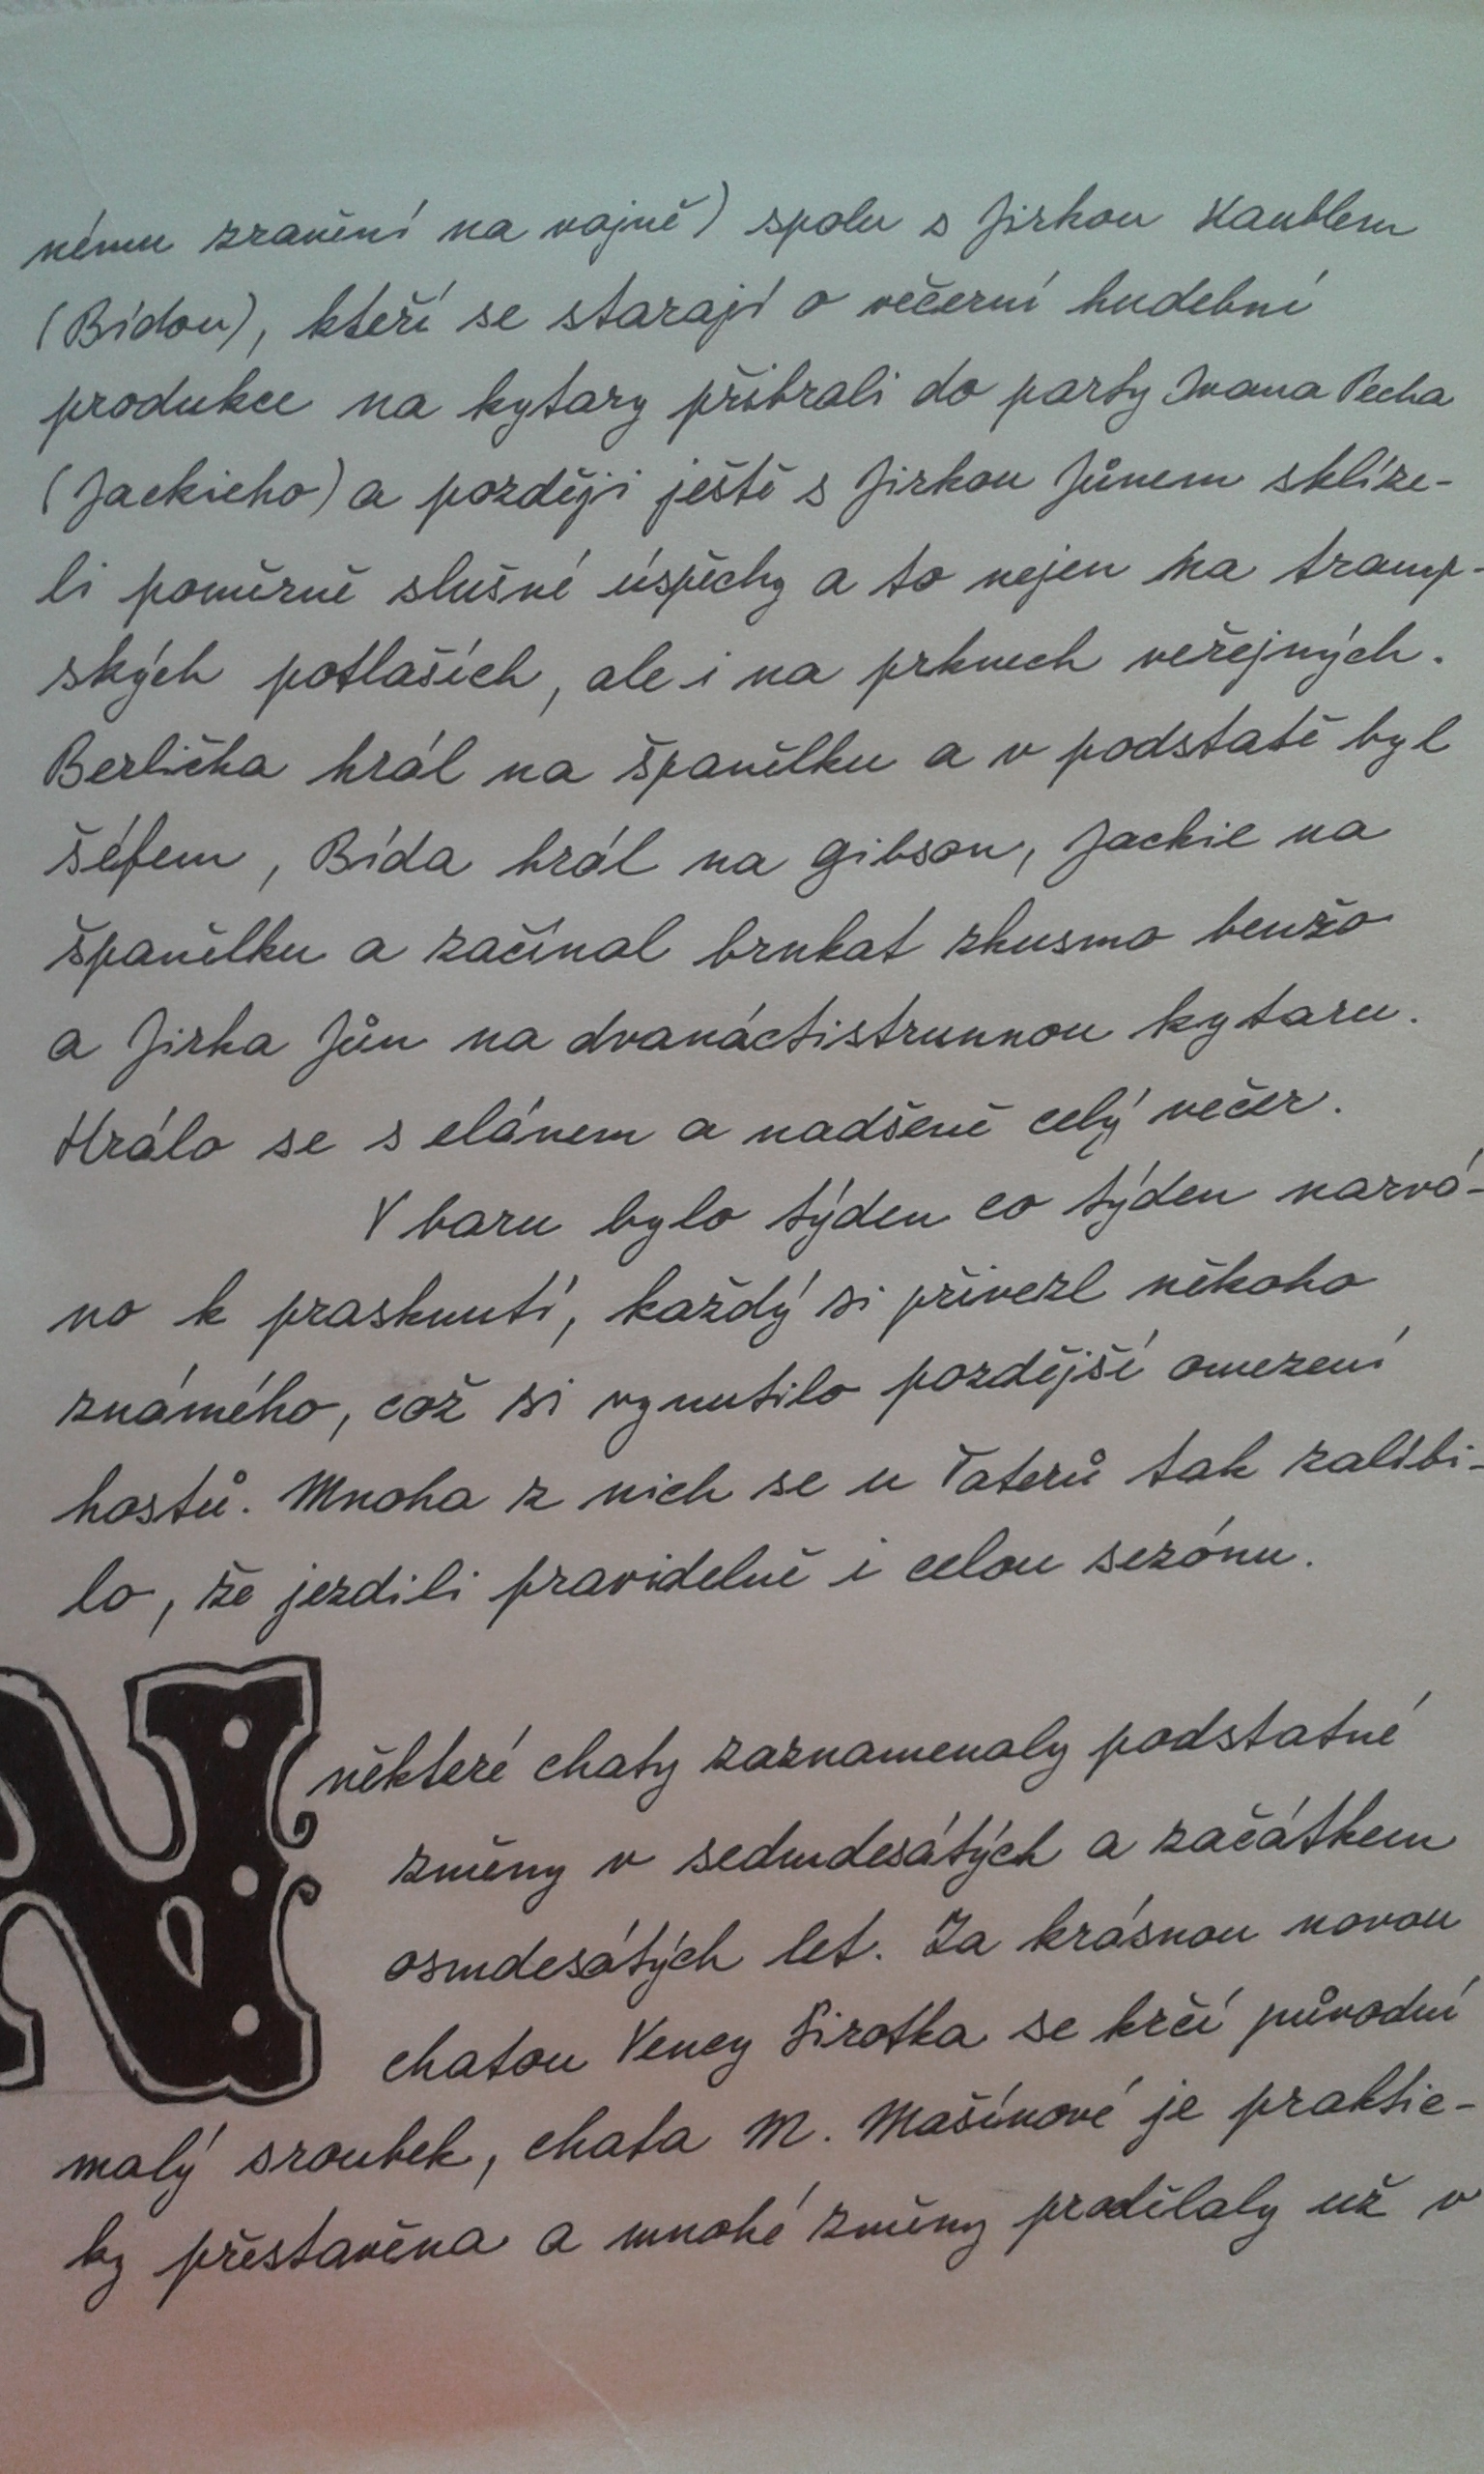 nému zranění na vojně) spolu s Jirkou Haublem
(Bídou), kteří se starají o večerní hudební
produkce na kytary přibrali do party Ivana Pecha
(Jackieho) a později ještě s Jirkou Jůnem sklíze-
li poměrně slušné úspěchy a to nejen na tramp-
ských potlaších, ale i na prknech veřejných.
Berlička hrál na španělku a v podstatě byl
šéfem, Bída hrál na gibson, Jackie na
španělku a začínal brnkat zkusmo benžo
a Jirka Jůn na dvanáctistrunnou kytaru.
Hrálo se s elánem a nadšeně celý večer.
V baru bylo týden co týden narvá-
no k prasknutí, každý si přivezl někoho
známého, což si vynutilo pozdější omezení
hostů. Mnoha z nich se u Taterů tak zalíbi-
lo, že jezdili pravidelně i celou sezónu.
N
některé chaty zaznamenaly podstatné
změny v sedmdesátých a začátkem
osmdesátých let. Za krásnou novou
chatou Vency Sirotka se krčí původní
malý sroubek, chata M. Mašínové je praktic-
ky přestavěna a mnohé změny prodělaly už v